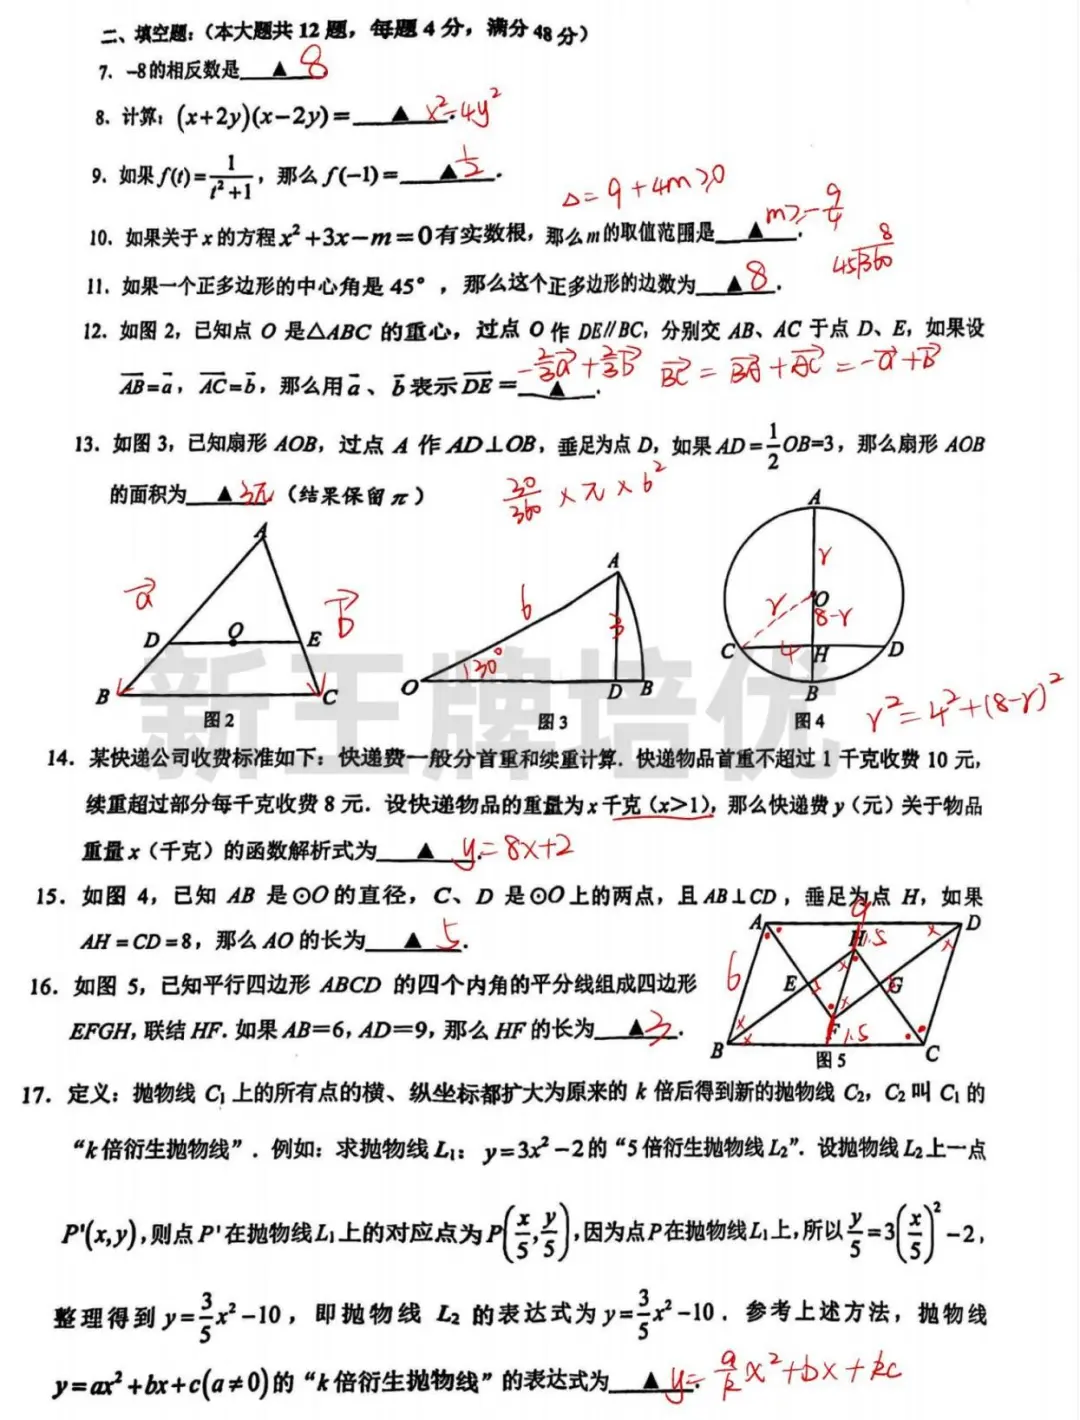 二、填空题：（本大题共 12 题，每题 4 分，满分 48 分）
7. -8的相反数是 ▲ 8
8. 计算：(x+2y)(x-2y)= ▲ x²-4y² .
9. 如果 f(t)=1/(t²+1)，那么 f(-1)= ▲ 1/2 .
Δ=9+4m≥0
10. 如果关于 x 的方程 x²+3x-m=0有实数根，那么m的取值范围是 ▲ m≥-9/4 .
8
45√360
11. 如果一个正多边形的中心角是 45°，那么这个正多边形的边数为 ▲ 8 .
12. 如图 2，已知点 O 是△ABC 的重心，过点 O 作 DE∥BC，分别交 AB、AC 于点 D、E，如果设
AB=a，AC=b，那么用 a、b 表示 DE= ▲ -2/3a+2/3b . BC=BA+AC=-a+b
13. 如图 3，已知扇形 AOB，过点 A 作 AD⊥OB，垂足为点 D，如果 AD=1/2OB=3，那么扇形 AOB
的面积为 ▲ 3π （结果保留 π） 30/360×π×6²
A
a
b
D O E
B C
图 2
A
6
3
30°
O D B
图 3
A
r
r O
8-r
C 4 H D
B
图 4
r²=4²+(8-r)²
14. 某快递公司收费标准如下：快递费一般分首重和续重计算．快递物品首重不超过 1 千克收费 10 元，
续重超过部分每千克收费 8 元．设快递物品的重量为 x 千克（x>1），那么快递费 y（元）关于物品
重量 x（千克）的函数解析式为 ▲ y=8x+2 .
15. 如图 4，已知 AB 是⊙O 的直径，C、D 是⊙O 上的两点，且 AB⊥CD，垂足为点 H，如果
AH=CD=8，那么 AO 的长为 ▲ 5 .
16. 如图 5，已知平行四边形 ABCD 的四个内角的平分线组成四边形
EFGH，联结 HF．如果 AB=6，AD=9，那么 HF 的长为 ▲ 3 .
9
A H 1.5 D
6 E G
F 1.5
B C
图 5
17. 定义：抛物线 C₁ 上的所有点的横、纵坐标都扩大为原来的 k 倍后得到新的抛物线 C₂，C₂ 叫 C₁ 的
“k 倍衍生抛物线”．例如：求抛物线 L₁：y=3x²-2的“5 倍衍生抛物线 L₂”．设抛物线 L₂ 上一点
P'(x,y)，则点 P'在抛物线 L₁ 上的对应点为 P(x/5, y/5)，因为点 P 在抛物线 L₁ 上，所以 y/5=3(x/5)²-2，
整理得到 y=3/5x²-10，即抛物线 L₂ 的表达式为 y=3/5x²-10．参考上述方法，抛物线
y=ax²+bx+c(a≠0)的“k 倍衍生抛物线”的表达式为 ▲ y=a/kx²+bx+kc .
新王牌培优